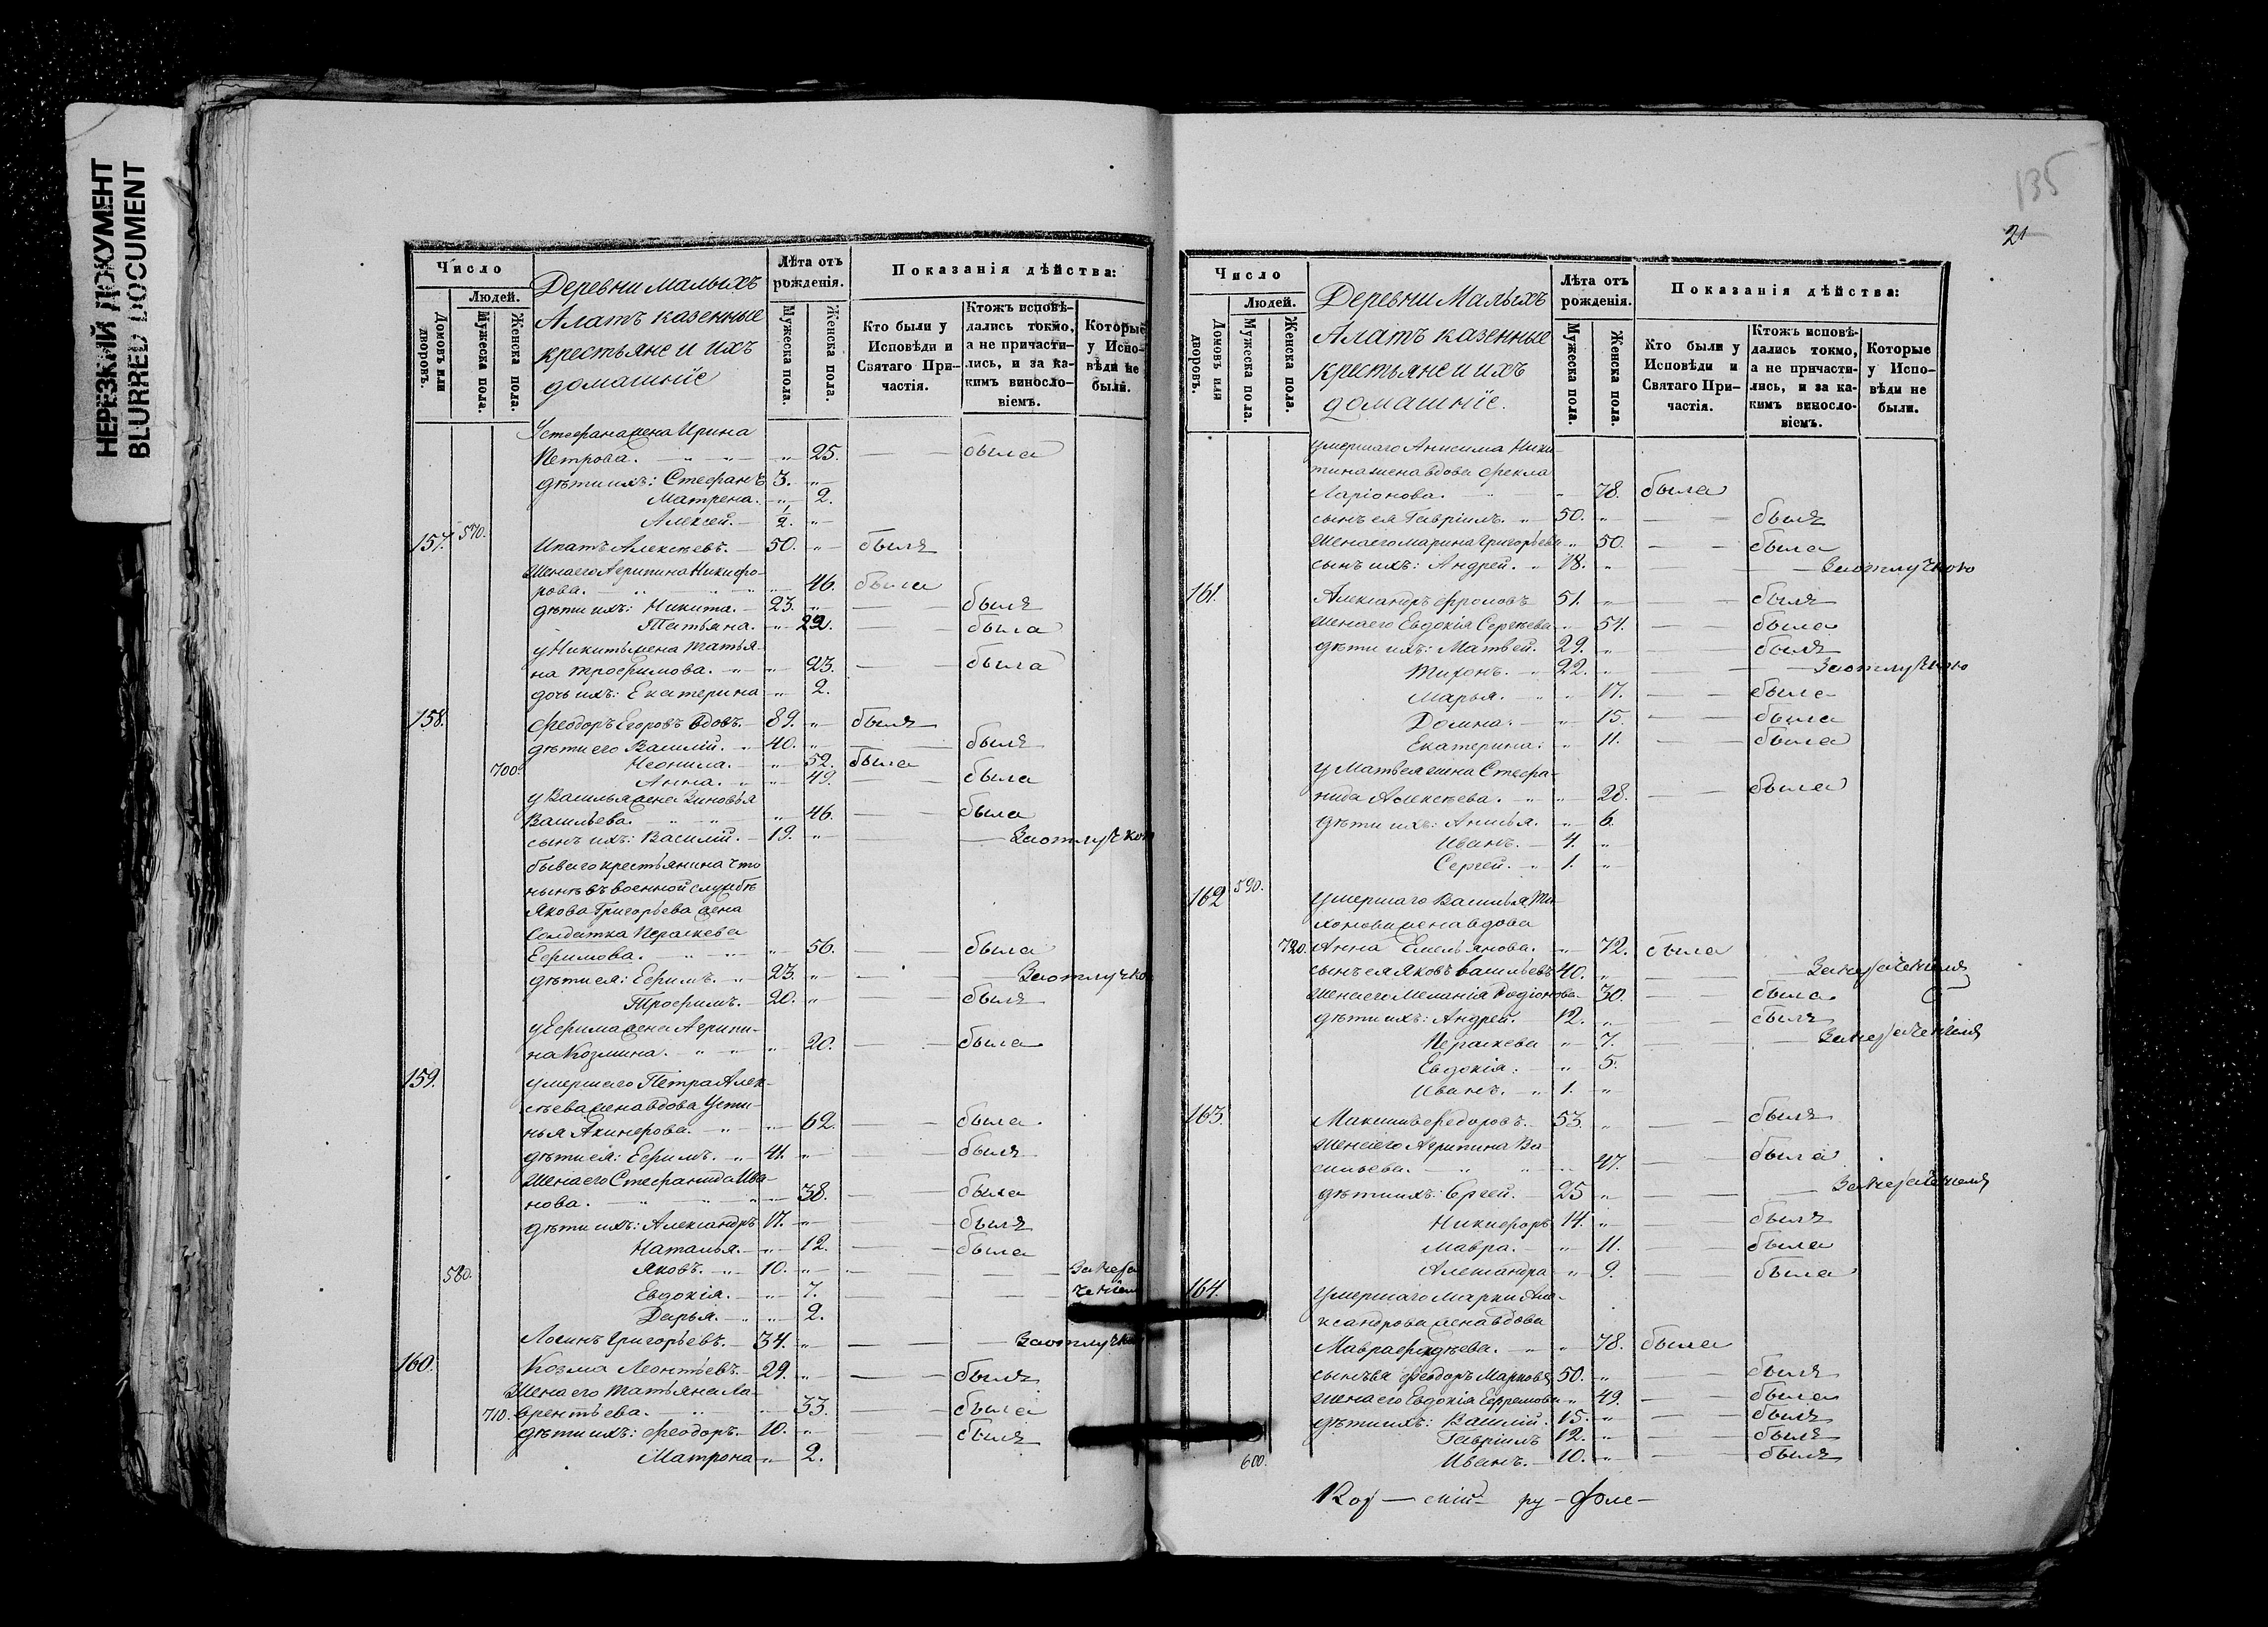 НЕРЕЗКИЙ ДОКУМЕНТ
BLURRED DOCUMENT
Число
Людей.
Домовъ или дворовъ.
Мужеска пола.
Женска пола.
Деревни Малыхъ
Алатъ казенные
крестьяне и ихъ
домашніе
Лѣта отъ рожденія.
Мужеска пола.
Женска пола.
Показанія дѣйства:
Кто были у Исповѣди и Святаго Причастія.
Ктожъ исповѣдались токмо, а не причастились, и за какимъ винословіемъ.
Которые у Исповѣди не были.
У Стефана жена Ирина
Петрова. 25. была
дѣти ихъ: Стефанъ 3.
Матрена. 2.
Алексей. 1/2.
157. 570. Ипатъ Алексѣевъ. 50. былъ
Жена его Агрипина Никифо-
рова. 46. была
дѣти ихъ: Никита. 23. былъ
Татьяна. 22. была
у Никиты жена Татья-
на Трофимова. 23. была
дочь ихъ: Екатерина 2.
158. Феодоръ Егоровъ вдовъ. 89. былъ
дѣти его Василій. 40. былъ
Неонила. 52. была
700. Анна. 49. была
у Василья жена Зиновья
Васильева. 46. была
сынъ ихъ: Василій. 19. За отлучкою
бывшего крестьянина что
нынѣ въ военной службѣ
Якова Григорьева жена
Солдатка Параскева
Ефимова. 56. была
дѣти ея: Ефимъ. 23. За отлучко
Трофимъ. 20. былъ
у Ефима жена Агрипи-
на Козмина. 20. была
159. умершего Петра Алек-
сѣева жена вдова Усти-
нья Акинфова. 62. была
дѣти ея: Ефимъ. 41. былъ
Жена его Стефанида Ива-
нова. 38. была
дѣти ихъ: Александръ 17. былъ
Наталья. 12. была
580. Яковъ. 10. За нера
Евдокія. 7. чением
Дарья. 2.
Логинъ Григорьевъ. 34. За отлучкою
160. Козма Леонтьевъ. 29. былъ
Жена его Татьяна Ла-
710. врентьева. 33. была
дѣти ихъ: Феодоръ. 10. былъ
Матрона 2.
135
21
Число
Людей.
Домовъ или дворовъ.
Мужеска пола.
Женска пола.
Деревни Малыхъ
Алатъ казенные
крестьяне и ихъ
домашніе.
Лѣта отъ рожденія.
Мужеска пола.
Женска пола.
Показанія дѣйства:
Кто были у Исповѣди и Святаго Причастія.
Ктожъ исповѣдались токмо, а не причастились, и за какимъ винословіемъ.
Которые у Исповѣди не были.
умершаго Анисима Ники-
тина жена вдова Фекла
Ларіонова. 78. была
сынъ ея Гавріилъ. 50. былъ
Жена его Марина Григорьева 50. была
сынъ ихъ: Андрей. 18. За отлучкою
161. Александръ Фроловъ 51. былъ
Жена его Евдокія Сергѣева 54. была
дѣти ихъ: Матвей. 29. былъ
Тихонъ. 22. За отлучкою
Марья. 17. была
Домна. 15. была
Екатерина. 11. была
у Матвея жена Стефа-
нида Алексѣева. 28. была
дѣти ихъ: Анисья. 6.
Иванъ. 4.
Сергей. 1.
162 590. умершаго Василья Ти-
хонова жена вдова
720. Анна Емельянова. 72. была
сынъ ея Яковъ Васильевъ 40. За нераченіем
Жена его Меланія Родіонова 30. была
дѣти ихъ: Андрей. 12. былъ
Параскева 7. За нераченіем
Евдокія. 5.
Иванъ. 1.
163. Максимъ Федоровъ. 53. былъ
Жена его Агрипина Ва
сильева. 47. была
дѣти ихъ: Сргей. 25 За нераченіем
Никифоръ 14. былъ
Мавра. 11. была
Александра 9. была
164. Умершаго Марки Але-
ксандрова жена вдова
Мавра 78. была
сынъ ея Феодоръ Марковъ 50. былъ
жена его Евдокія Ефремова 49. была
дѣти ихъ: Василій. 15. былъ
Гавріилъ 12. былъ
600. Иванъ. 10. былъ